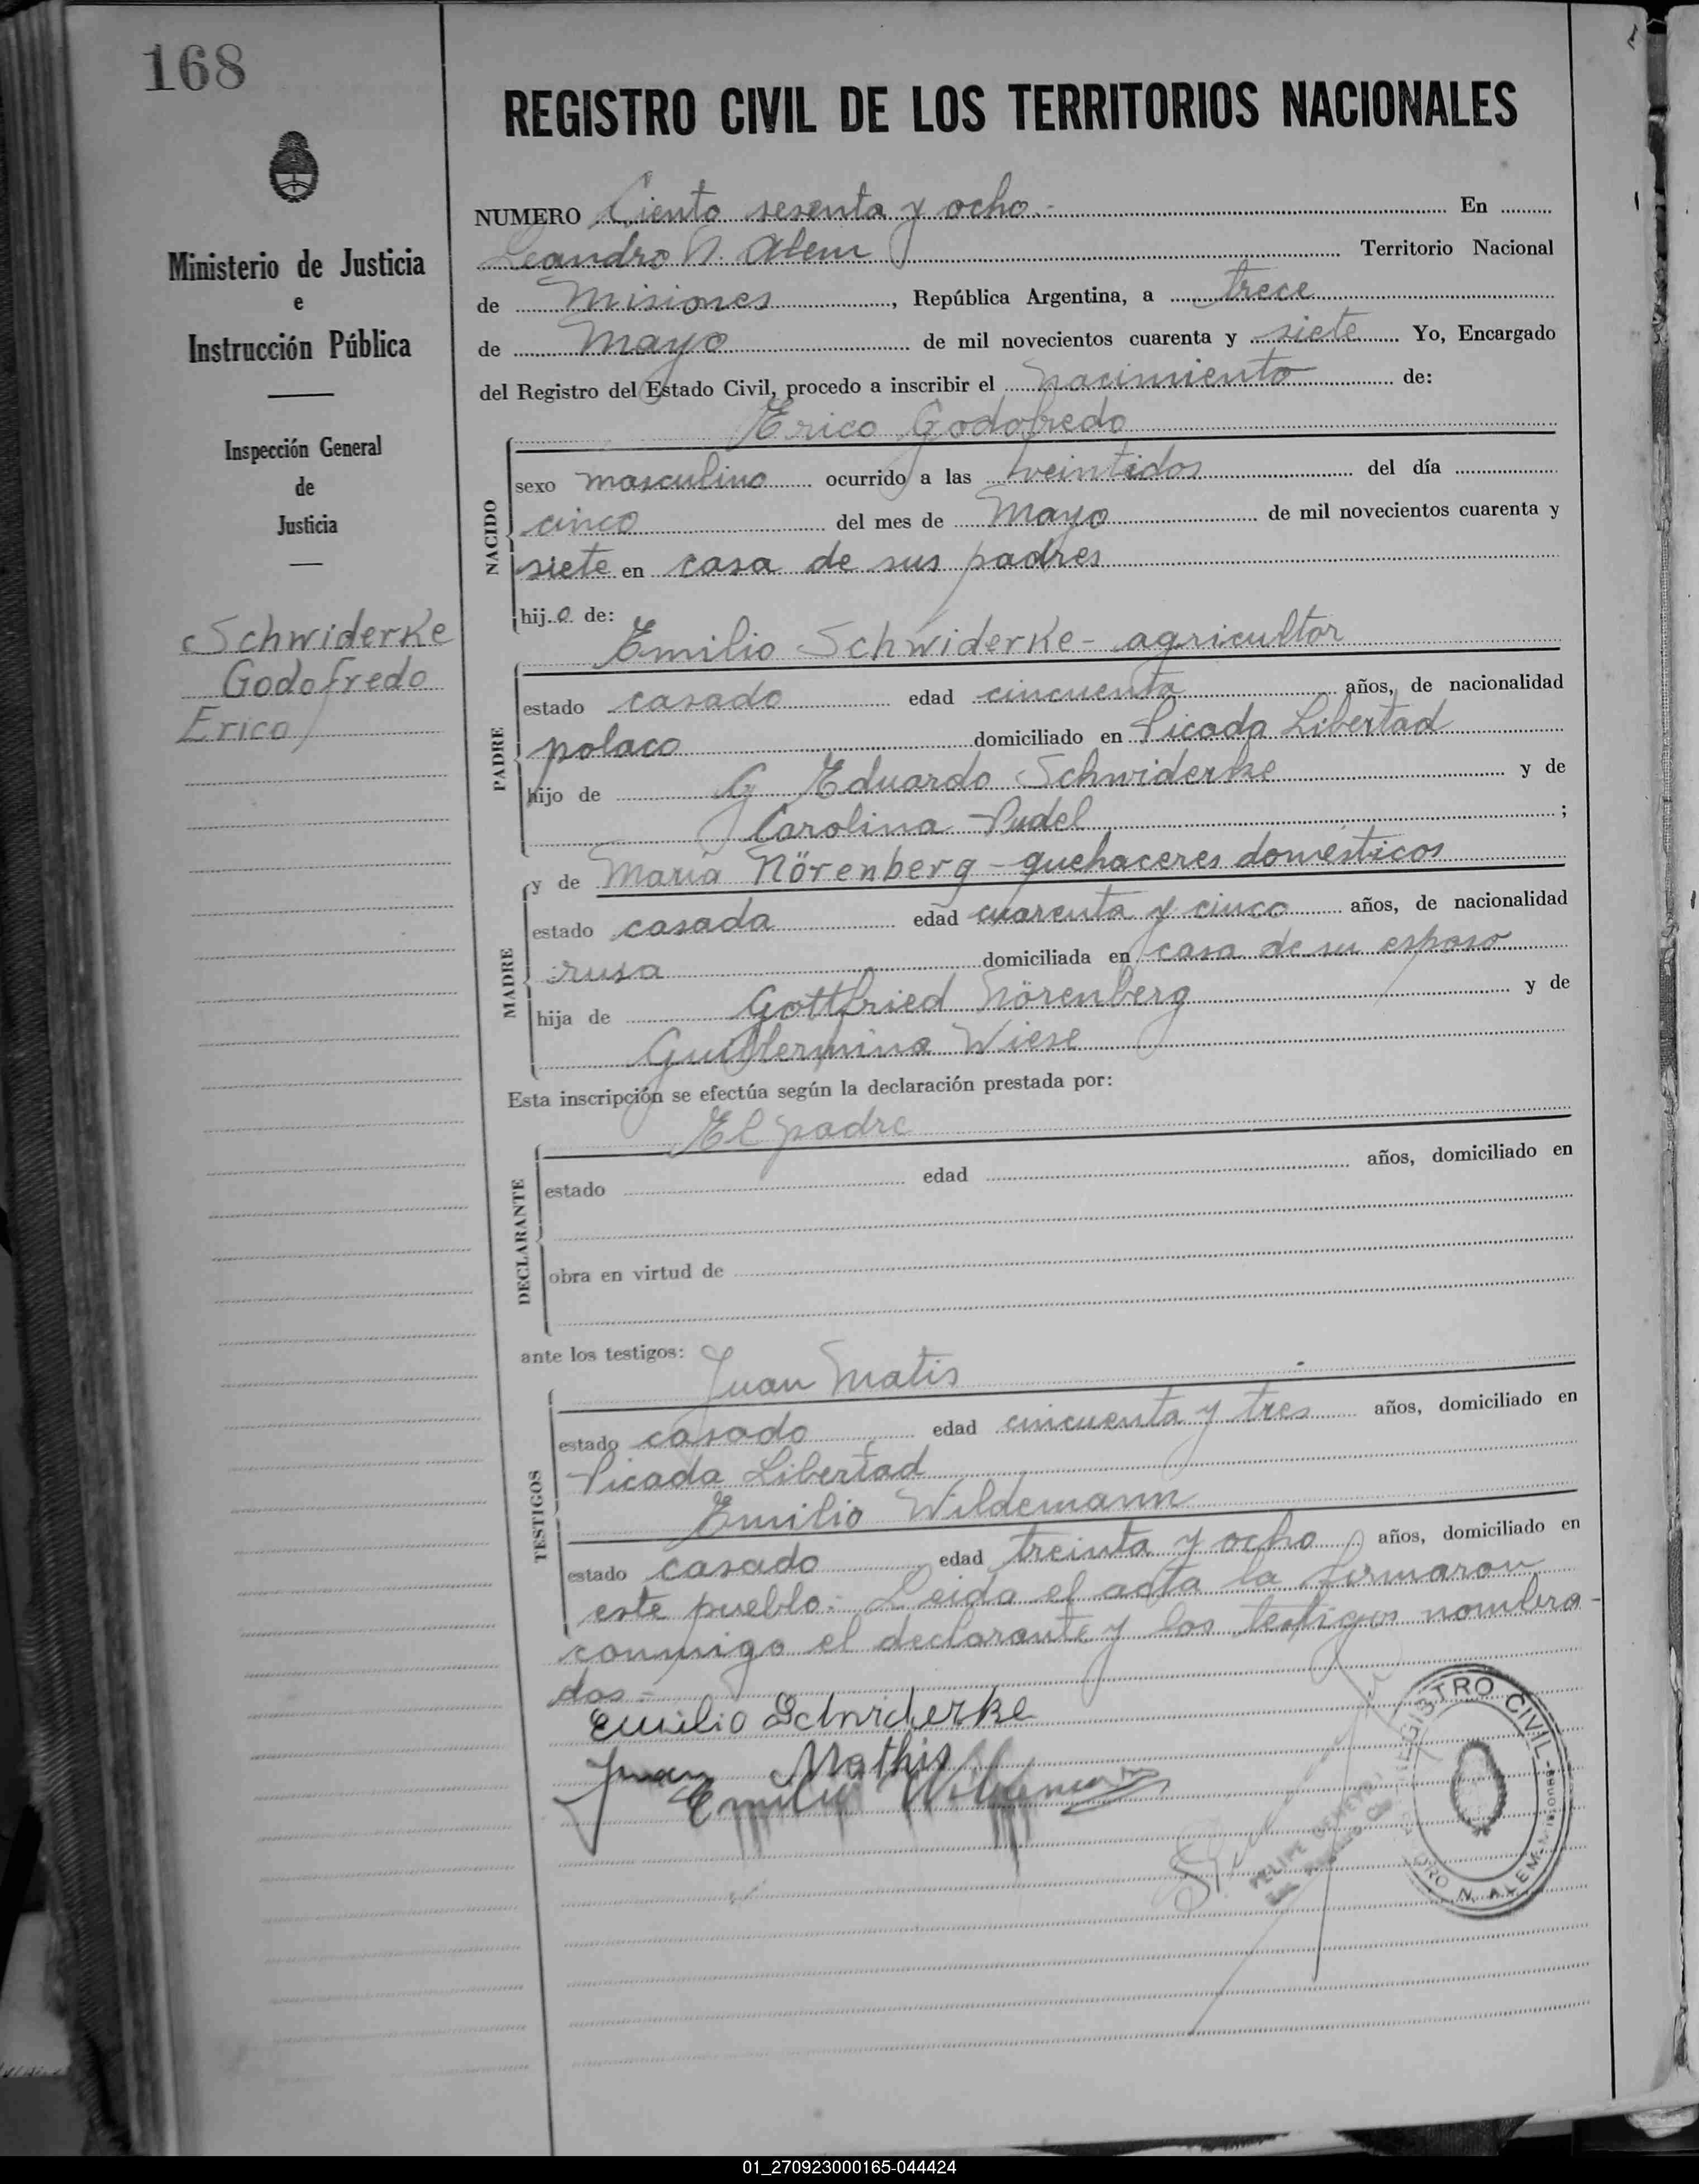 168
Ministerio de Justicia
e
Instrucción Pública
Inspección General
de
Justicia
Schwiderke
Godofredo
Erico
REGISTRO CIVIL DE LOS TERRITORIOS NACIONALES
NUMERO Ciento sesenta y ocho.- En
Leandro N. Alem Territorio Nacional
de Misiones, República Argentina, a trece
de Mayo de mil novecientos cuarenta y siete Yo, Encargado
del Registro del Estado Civil, procedo a inscribir el nacimiento de:
Erico Godofredo
NACIDO
sexo masculino ocurrido a las veintidos del día
cinco del mes de Mayo de mil novecientos cuarenta y
siete en casa de sus padres
hijo de:
Emilio Schwiderke - agricultor
PADRE
estado casado edad cincuenta años, de nacionalidad
polaco domiciliado en Picada Libertad
hijo de G Eduardo Schwiderke y de
Carolina Pudel;
y de Maria Nörenberg - quehaceres domésticos
MADRE
estado casada edad cuarenta y cinco años, de nacionalidad
rusa domiciliada en casa de su esposo
hija de Gottfried Nörenberg y de
Guillermina Wiese
Esta inscripción se efectúa según la declaración prestada por:
El padre
DECLARANTE
estado edad años, domiciliado en
obra en virtud de
ante los testigos:
Juan Matis
TESTIGOS
estado casado edad cincuenta y tres años, domiciliado en
Picada Libertad
Emilio Wildemann
estado casado edad treinta y ocho años, domiciliado en
este pueblo.- Leida el acta la firmaron
conmigo el declarante y los testigos nombra-
dos.-
Emilio Schwiderke
Juan Mathis
Emilio Wildemann
REGISTRO CIVIL
LEANDRO N. ALEM - MISIONES
FELIPE
01_270923000165-044424